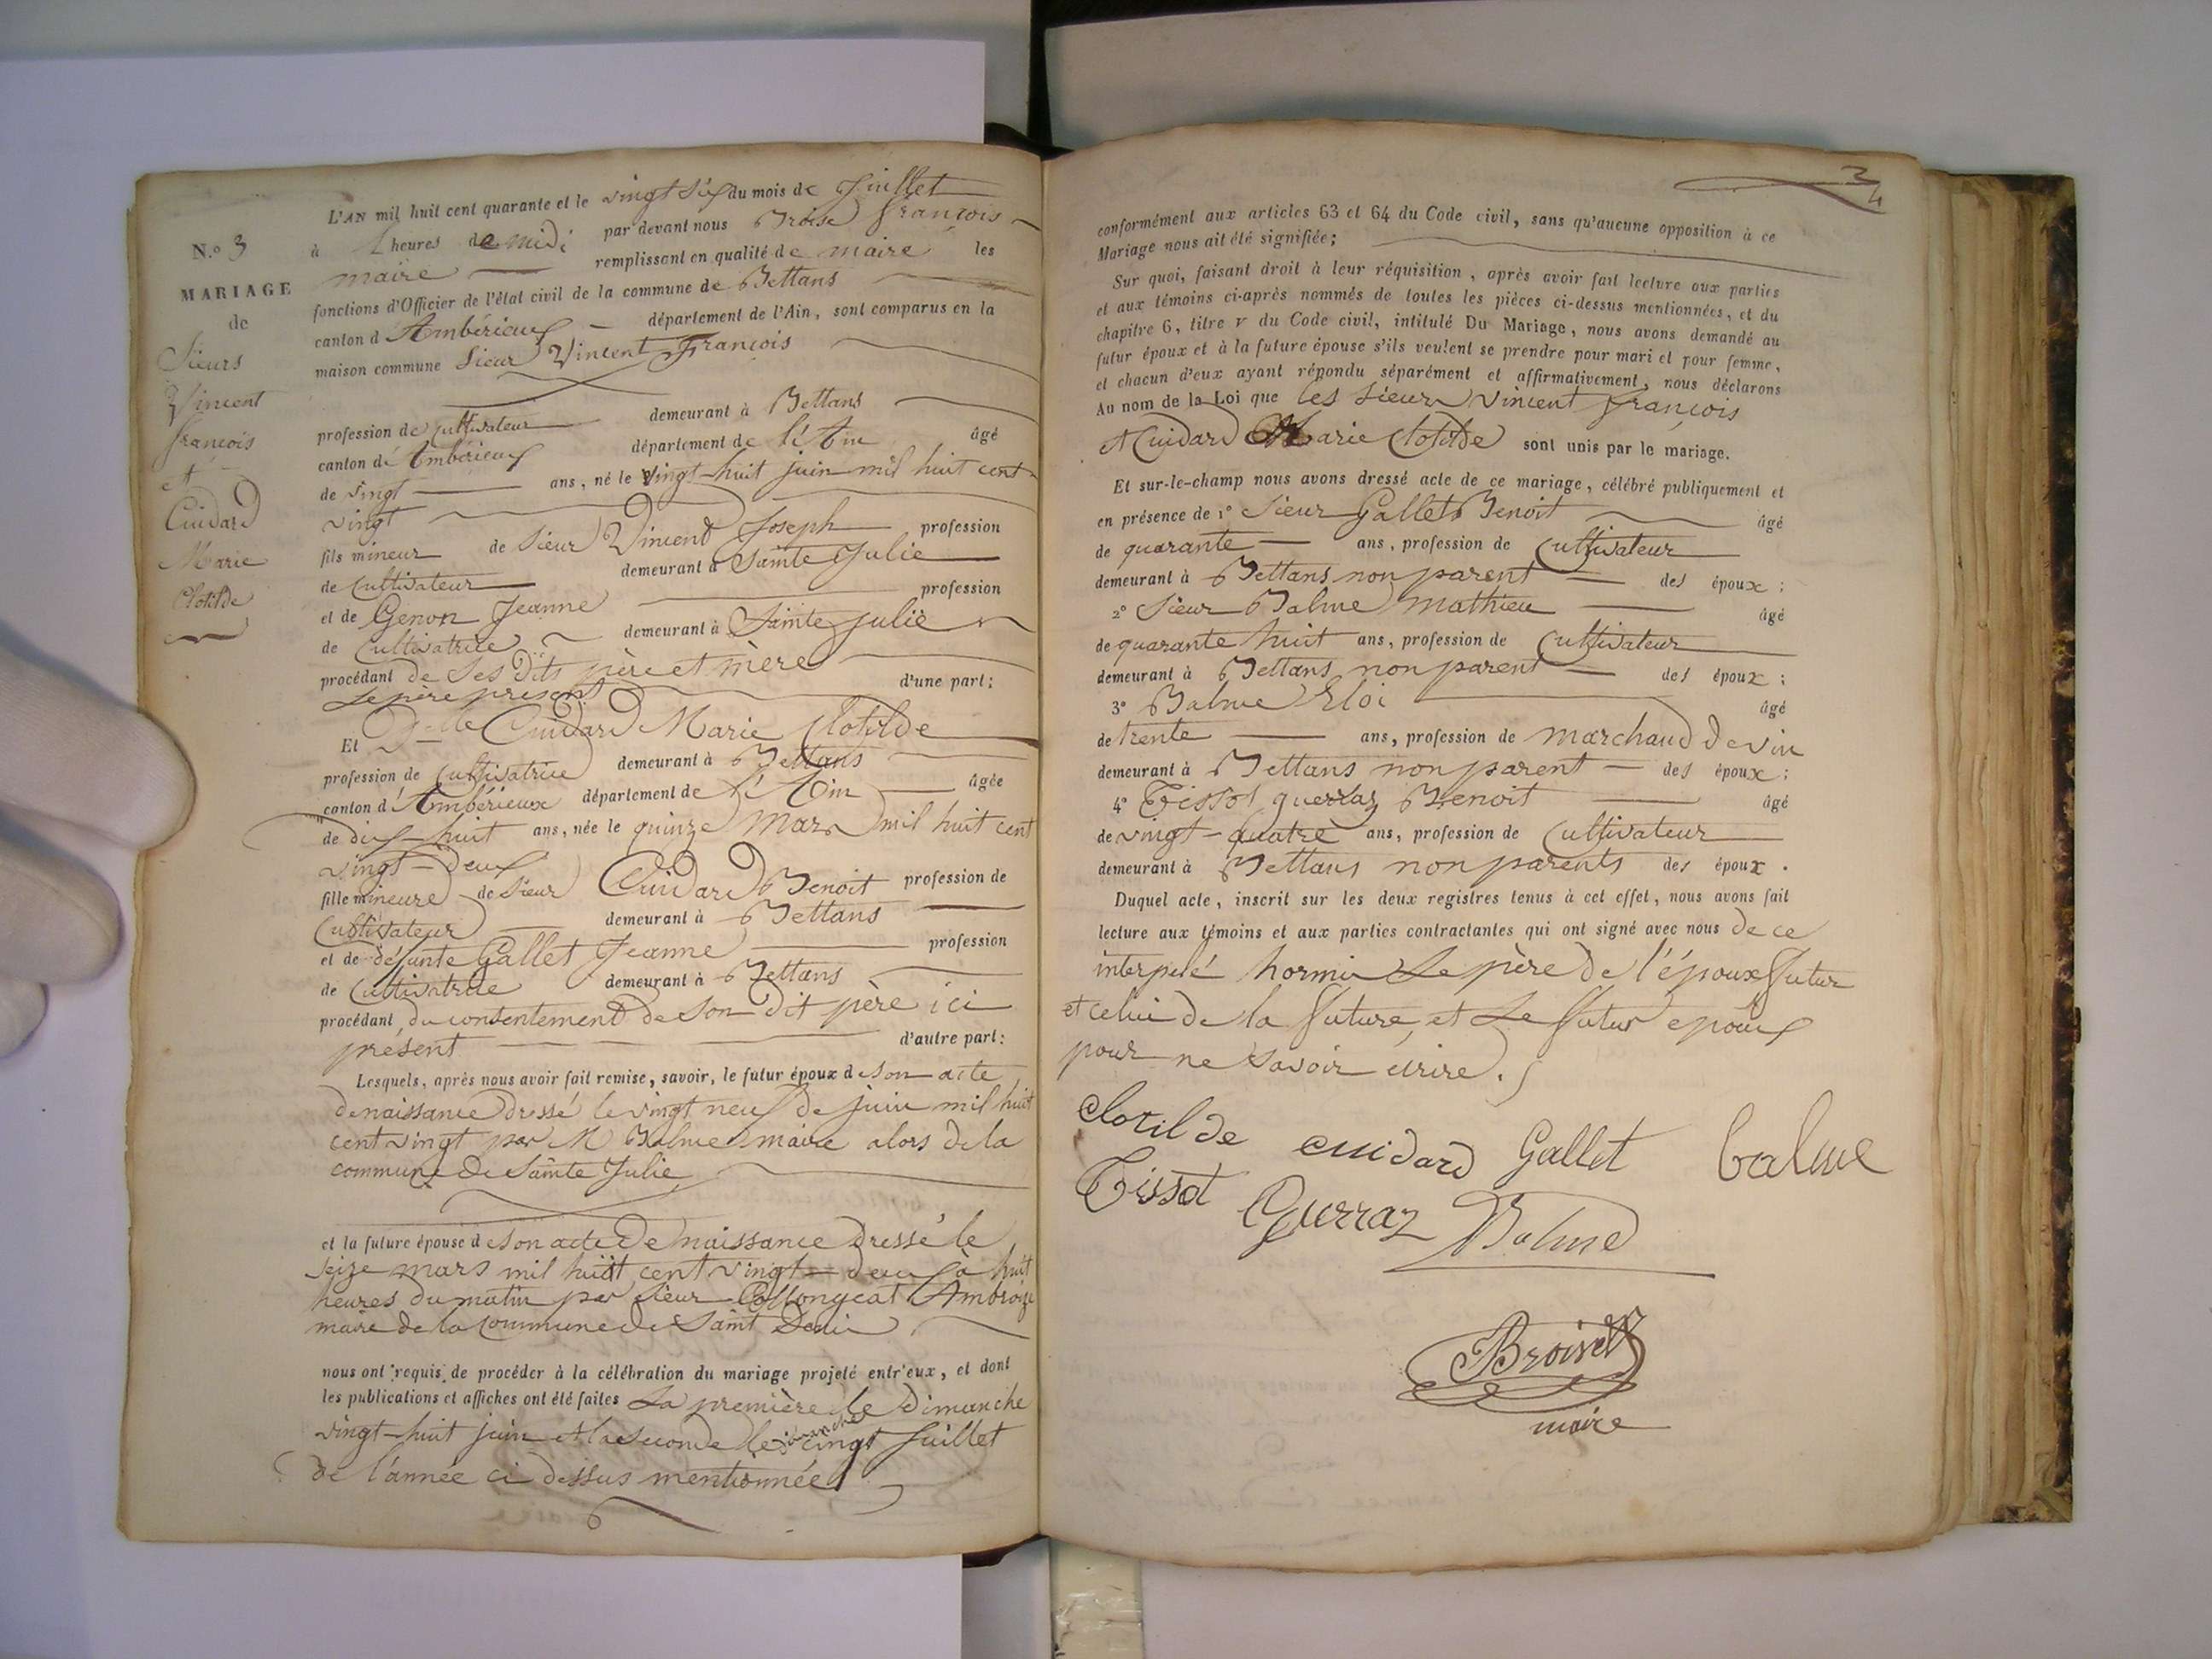 N.o 3
MARIAGE
de
Sieurs
Vincent
françois
et
Cuidard
Marie
Clotilde
L'AN mil huit cent quarante et le vingt six du mois de Juillet
à heures de midi par devant nous françois
maire remplissant en qualité de maire les
fonctions d'Officier de l'état civil de la commune de Bettans
canton d'Ambérieux département de l'Ain, sont comparus en la
maison commune Sieur Vincent François
profession de cultivateur demeurant à Bettans
canton d'Ambérieux département de l'Ain âgé
de vingt ans, né le vingt-huit juin mil huit cent
vingt
fils mineur de Sieur Vincent Joseph profession
de Cultivateur demeurant à Sainte Julie
et de Genon Jeanne profession
de Cultivatrice demeurant à Sainte Julie
procédant de Ses dits père et mère
Le père présent d'une part;
Et Delle Cuidard Marie Clotilde
profession de Cultivatrice demeurant à Bettans
canton d'Ambérieux département de l'Ain âgée
de dix-huit ans, née le quinze Mars mil huit cent
vingt-deux
fille mineure de Sieur Cuidard Benoit profession de
Cultivateur demeurant à Bettans
et de défunte Gallet Jeanne profession
de Cultivatrice demeurant à Bettans
procédant du consentement de son dit père ici
présent d'autre part:
Lesquels, après nous avoir fait remise, savoir, le futur époux de son acte
de naissance dressé le vingt neuf de juin mil huit
cent vingt par M Balme maire alors de la
commune de Sainte Julie
et la future épouse de son acte de naissance dressé le
seize mars mil huit cent vingt-deux à huit
heures du matin par Sieur Collongeat Ambroise
maire de la Commune de Saint Denis
nous ont requis de procéder à la célébration du mariage projeté entr'eux, et dont
les publications et affiches ont été faites La première le Dimanche
vingt-huit juin et la seconde le dimanche cinq Juillet
de l'année ci dessus mentionnée
3
4
conformément aux articles 63 et 64 du Code civil, sans qu'aucune opposition à ce
Mariage nous ait été signifiée;
Sur quoi, faisant droit à leur réquisition, après avoir fait lecture aux parties
et aux témoins ci-après nommés de toutes les pièces ci-dessus mentionnées, et du
chapitre 6, titre V du Code civil, intitulé Du Mariage, nous avons demandé au
futur époux et à la future épouse s'ils veulent se prendre pour mari et pour femme,
et chacun d'eux ayant répondu séparément et affirmativement, nous déclarons
Au nom de la Loi que les Sieurs Vincent françois
et Cuidard Marie Clotilde sont unis par le mariage.
Et sur-le-champ nous avons dressé acte de ce mariage, célébré publiquement et
en présence de 1° Sieur Gallet Benoit âgé
de quarante ans, profession de Cultivateur
demeurant à Bettans non parent des époux;
2° Sieur Balme Mathieu âgé
de quarante huit ans, profession de Cultivateur
demeurant à Bettans non parent des époux;
3° Balme Eloi âgé
de trente ans, profession de marchand de vin
demeurant à Bettans non parent des époux;
4° Tissot guerraz Benoit âgé
de vingt-quatre ans, profession de Cultivateur
demeurant à Bettans non parents des époux.
Duquel acte, inscrit sur les deux registres tenus à cet effet, nous avons fait
lecture aux témoins et aux parties contractantes qui ont signé avec nous de ce
interpelé hormis Le père de l'époux futur
et celui de la future, et Le futur epoux
pour ne savoir écrire.
Clotilde cuidard Gallet balme
Tissot Guerraz Balme
Broiset
maire